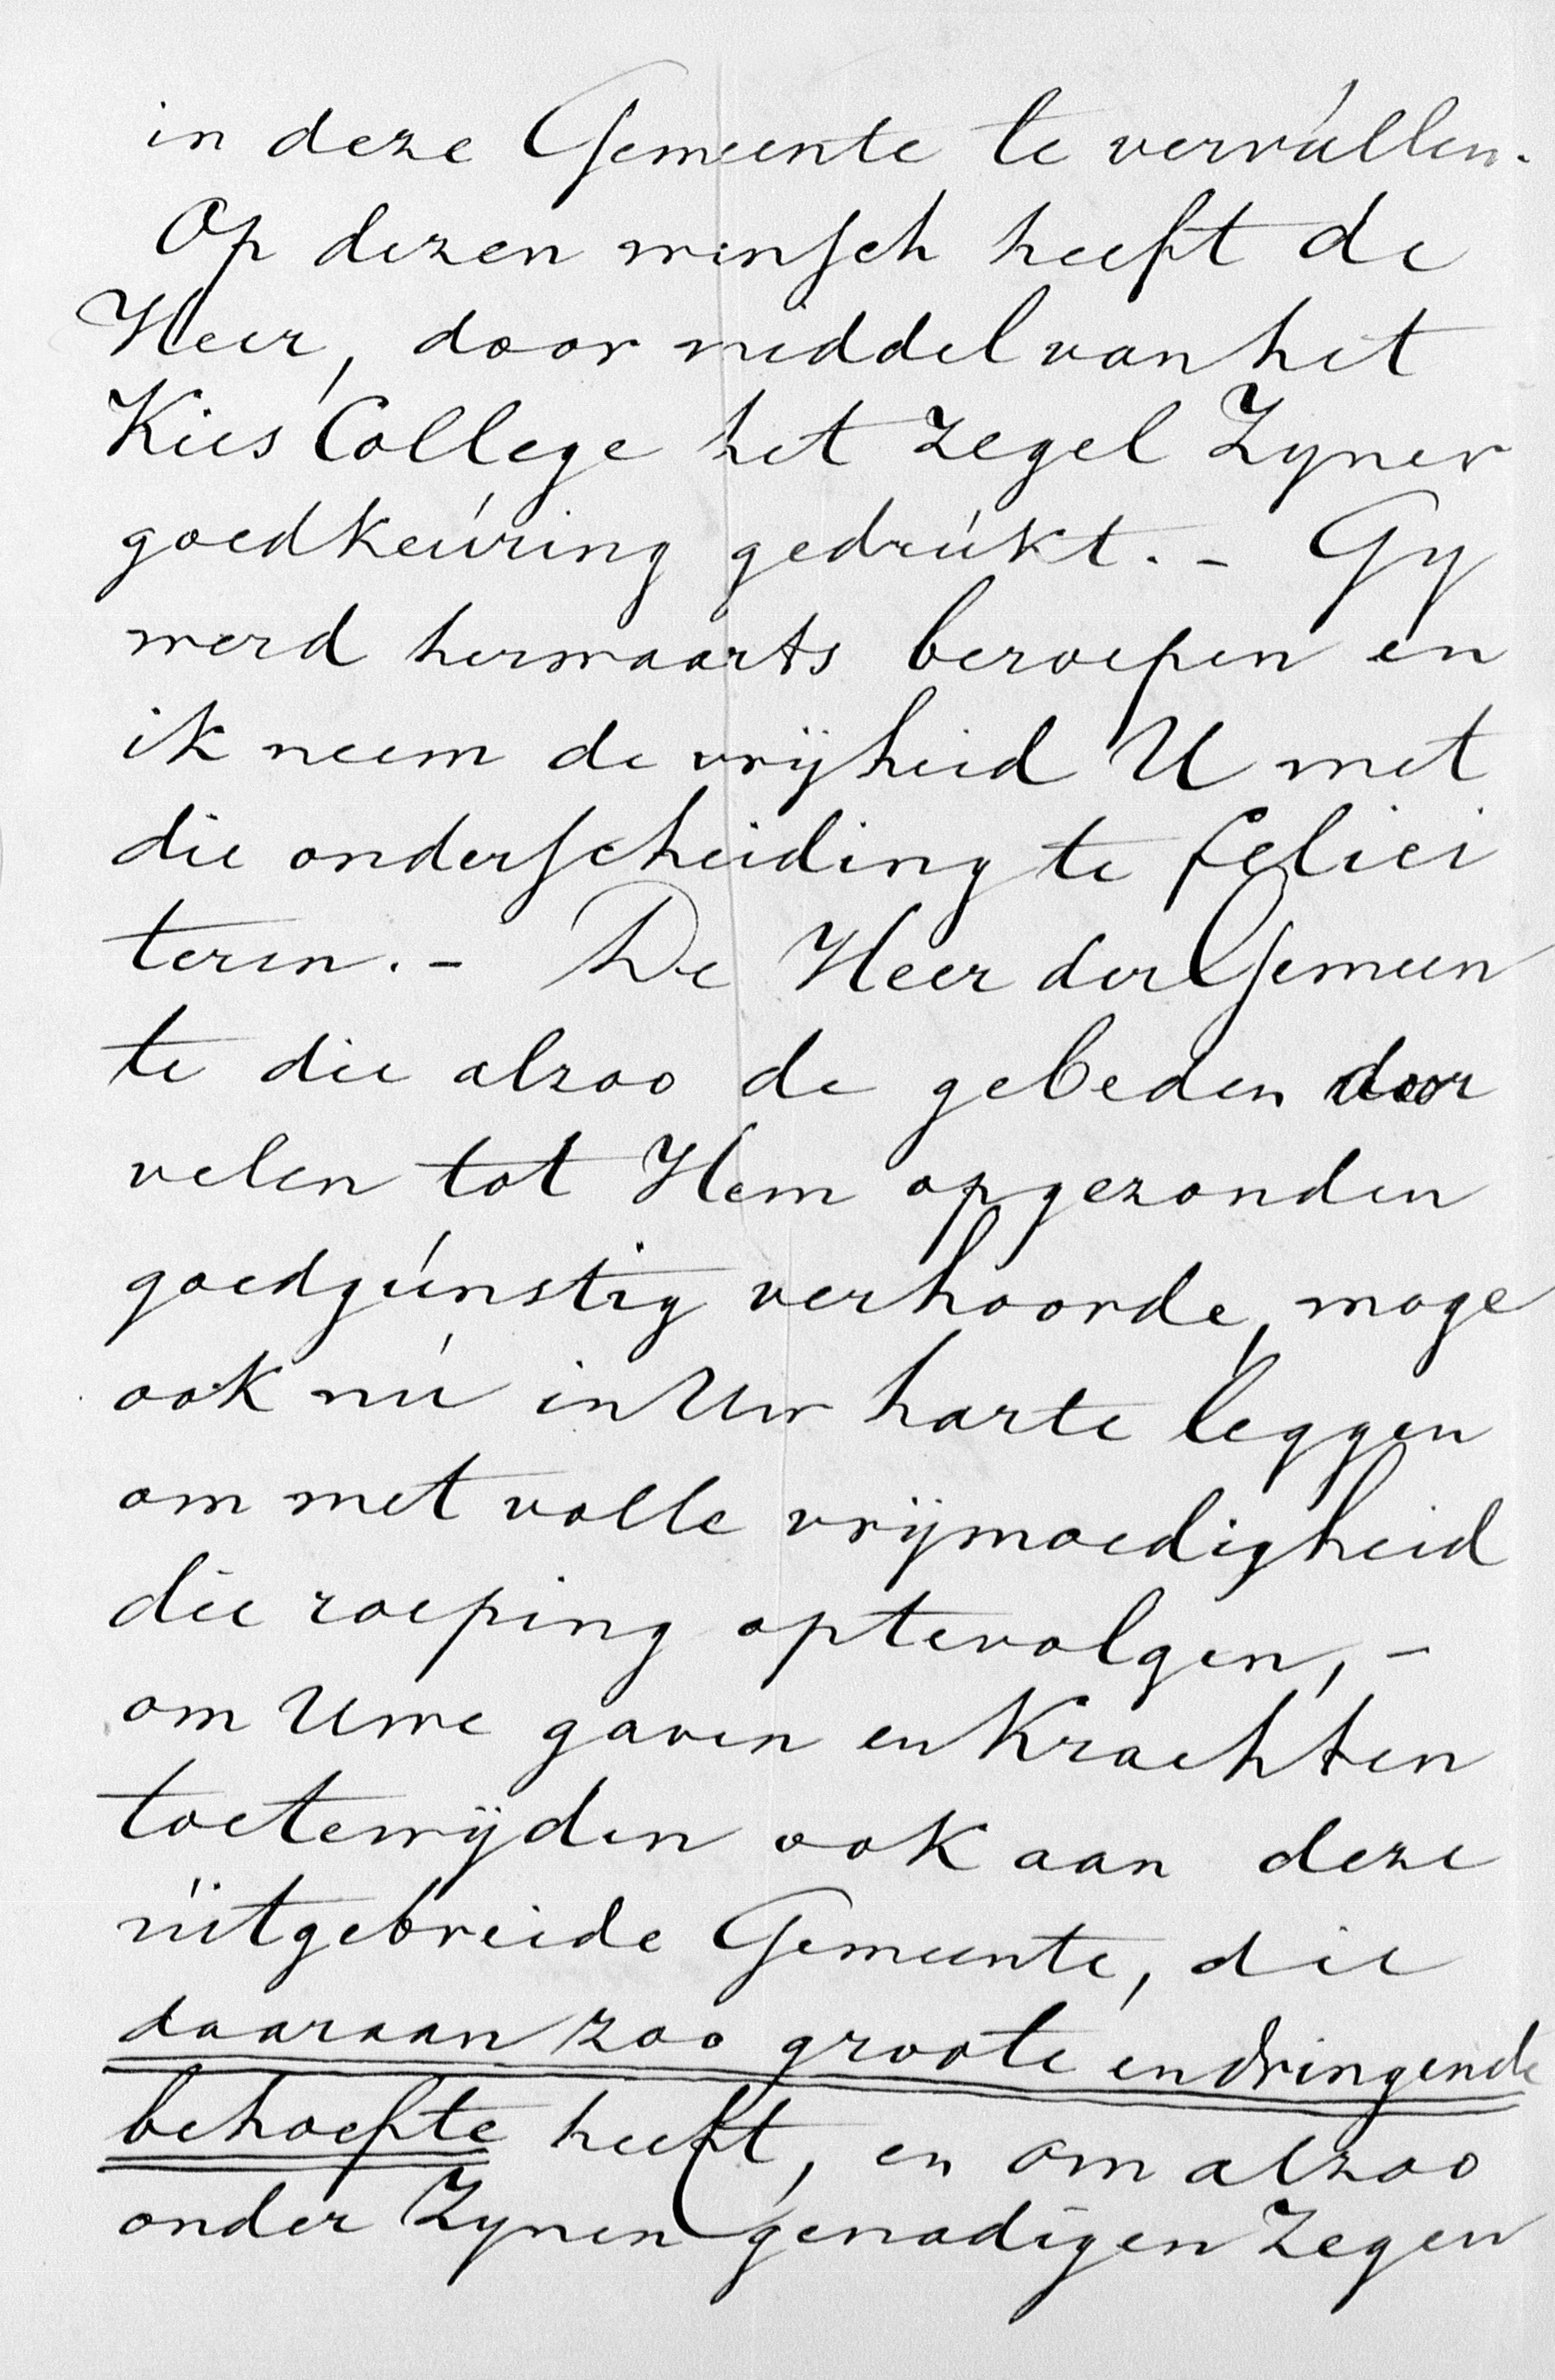 in deze Gemeente te vervullen.
Op dezen wensch heeft de
Heer, door middel van het
Kies College het zegel Zyner
goedkeuring gedrukt. - Gy
werd herwaarts beroepen en
ik neem de vrijheid U met
die onderscheiding te felici
teren. - De Heer der Gemeen
te die alzoo de gebeden door
velen tot Hem opgezonden
goedgunstig verhoorde, moge
ook nu in Uw harte leggen
om met volle vrijmoedigheid
die roeping optevolgen, -
om Uwe gaven en Krachten
toetewijden ook aan deze
uitgebreide Gemeente, die
daaraan zoo groote en dringende
behoefte heeft, en om alzoo
onder Zynen genadigen Zegen